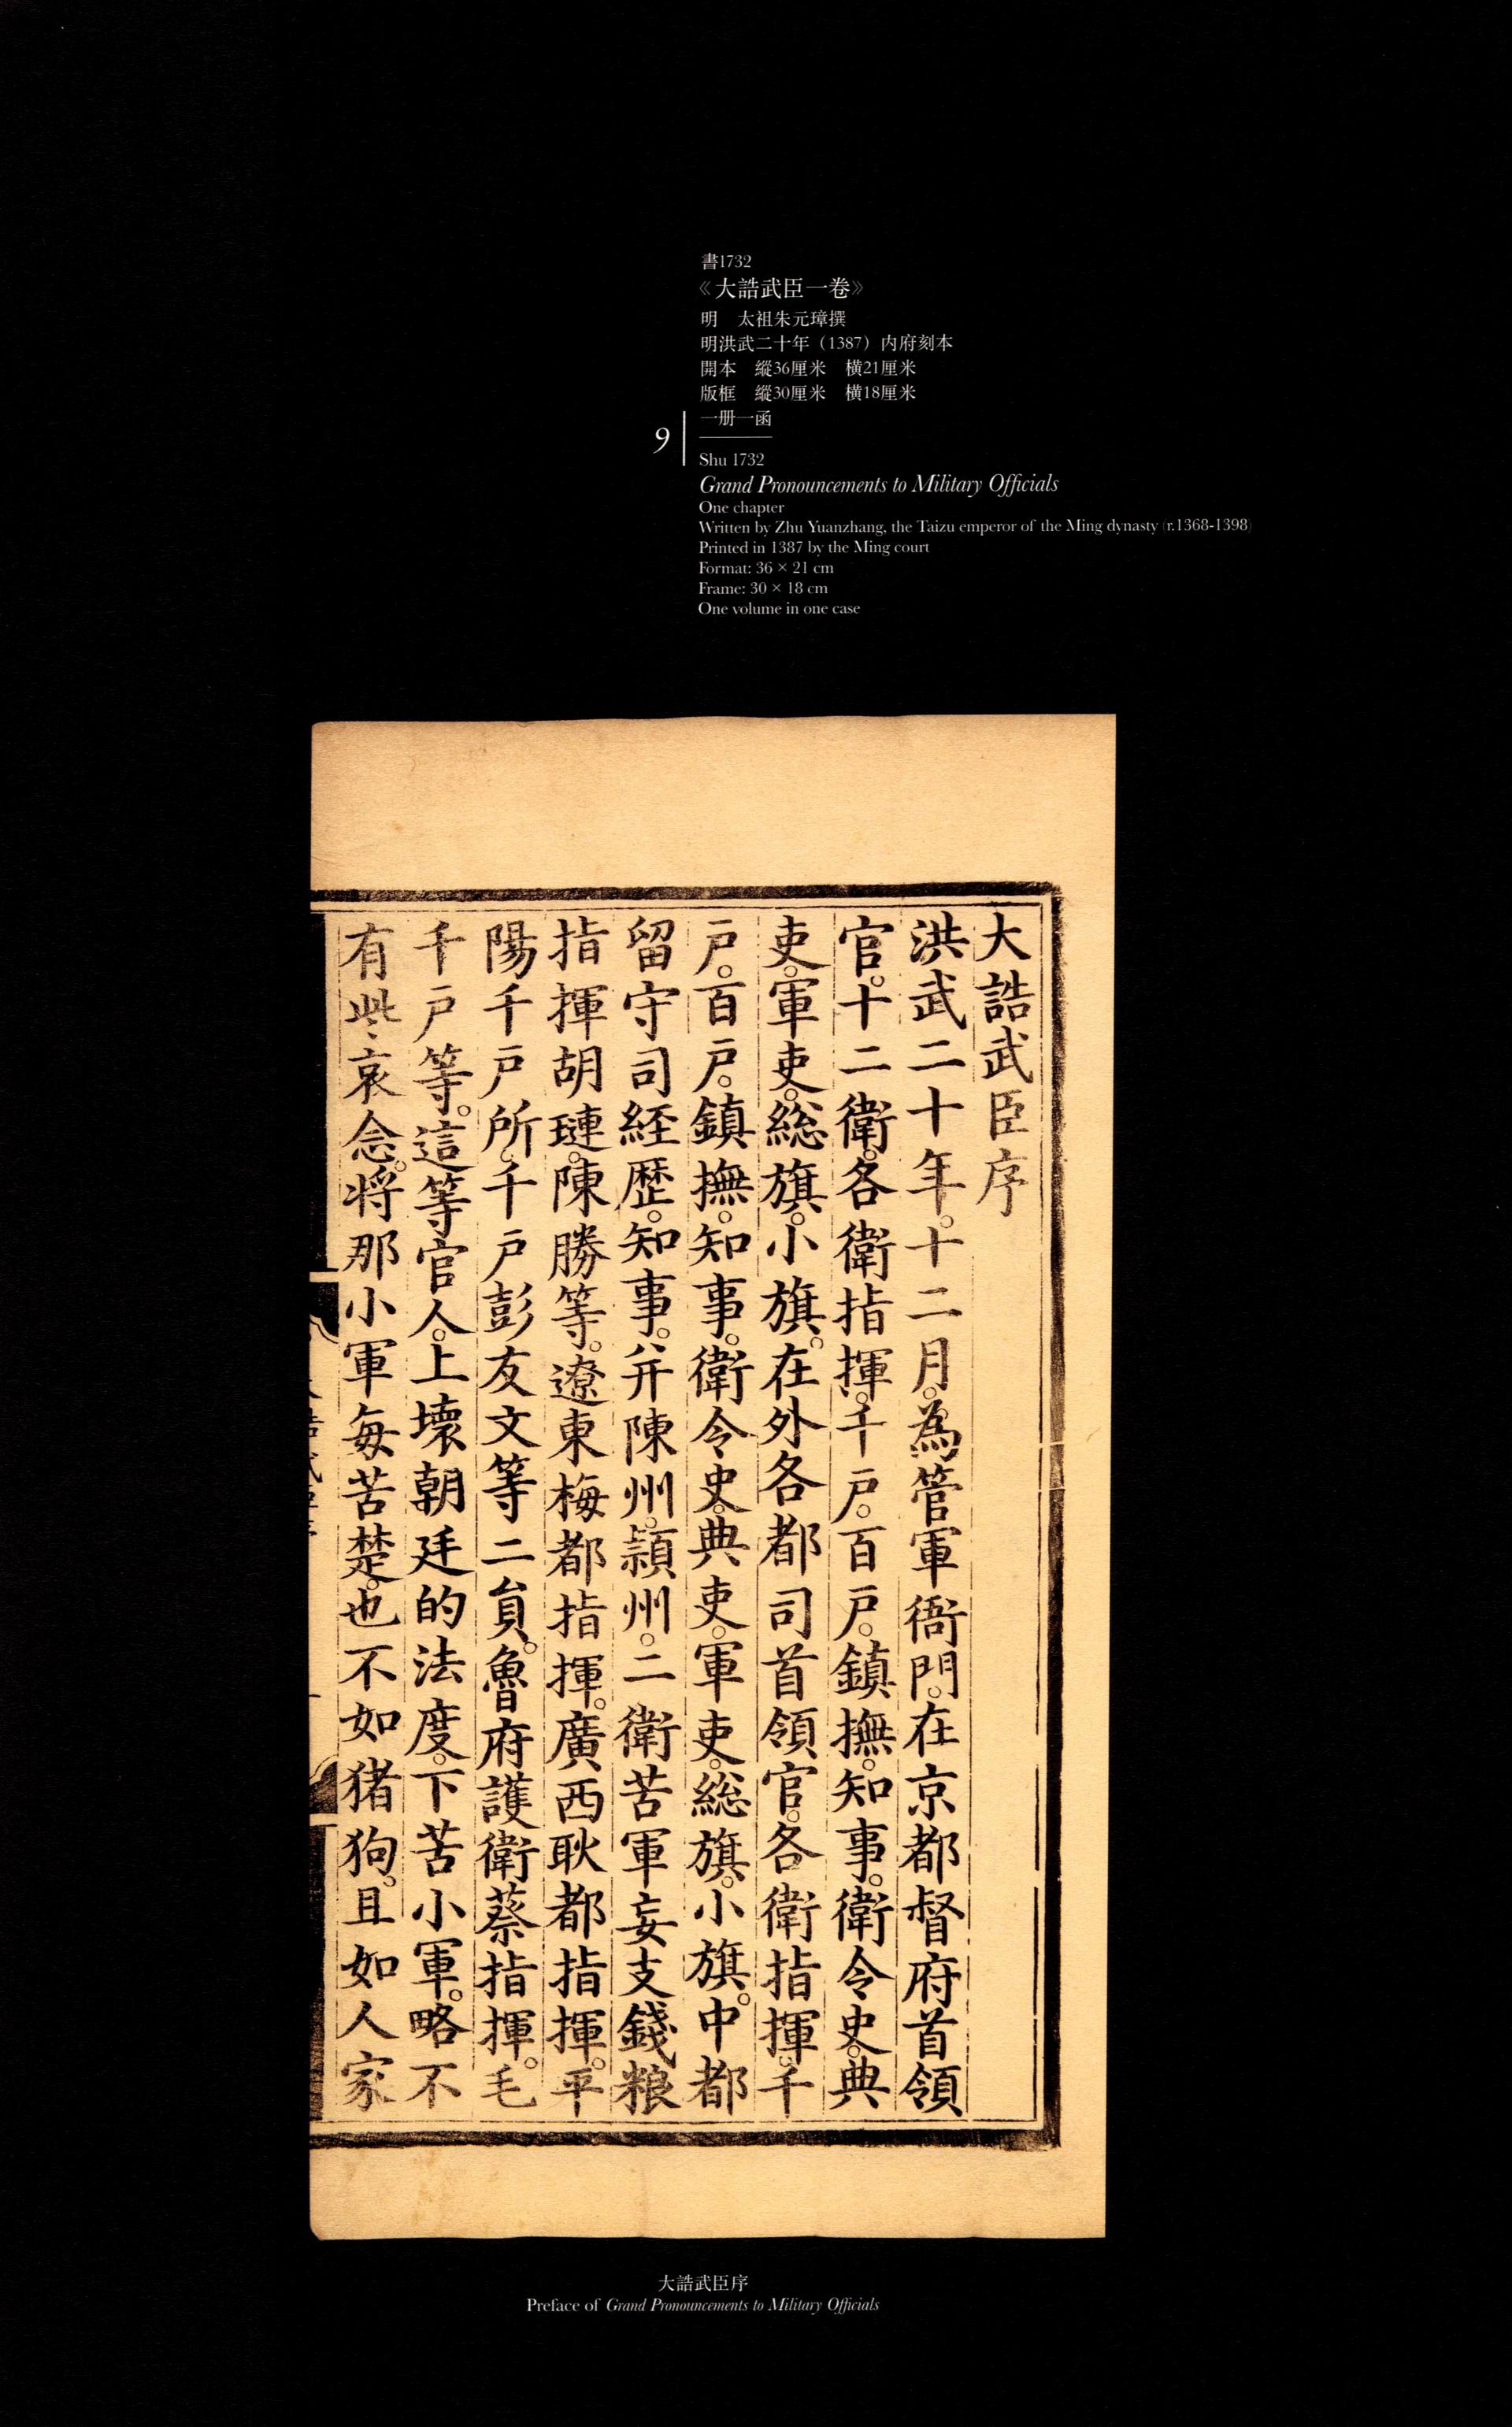 書1732
《大誥武臣一卷》
明　太祖朱元璋撰
明洪武二十年（1387）内府刻本
開本　縱36厘米　橫21厘米
版框　縱30厘米　橫18厘米
一册一函
9
Shu 1732
Grand Pronouncements to Military Officials
One chapter
Written by Zhu Yuanzhang, the Taizu emperor of the Ming dynasty (r.1368-1398)
Printed in 1387 by the Ming court
Format: 36 × 21 cm
Frame: 30 × 18 cm
One volume in one case
大誥武臣序
洪武二十年。十二月。為管軍衙門。在京都督府首領
官。十二衛。各衛指揮。千戶。百戶。鎮撫。知事。衛令史。典
吏。軍吏。総旗。小旗。在外各都司首領官。各衛指揮。千
戶。百戶。鎮撫。知事。衛令史。典吏。軍吏。総旗。小旗。中都
留守司経歴。知事。并陳州。潁州。二衛苦軍妄支錢粮
指揮胡璉。陳勝等。遼東梅都指揮。廣西耿都指揮。平
陽千戶所。千戶彭友文等二貟。魯府護衛蔡指揮。毛
千戶等。這等官人。上壞朝廷的法度。下苦小軍。略不
有些哀念。将那小軍每苦楚。也不如猪狗。且如人家
大誥武臣序
Preface of Grand Pronouncements to Military Officials